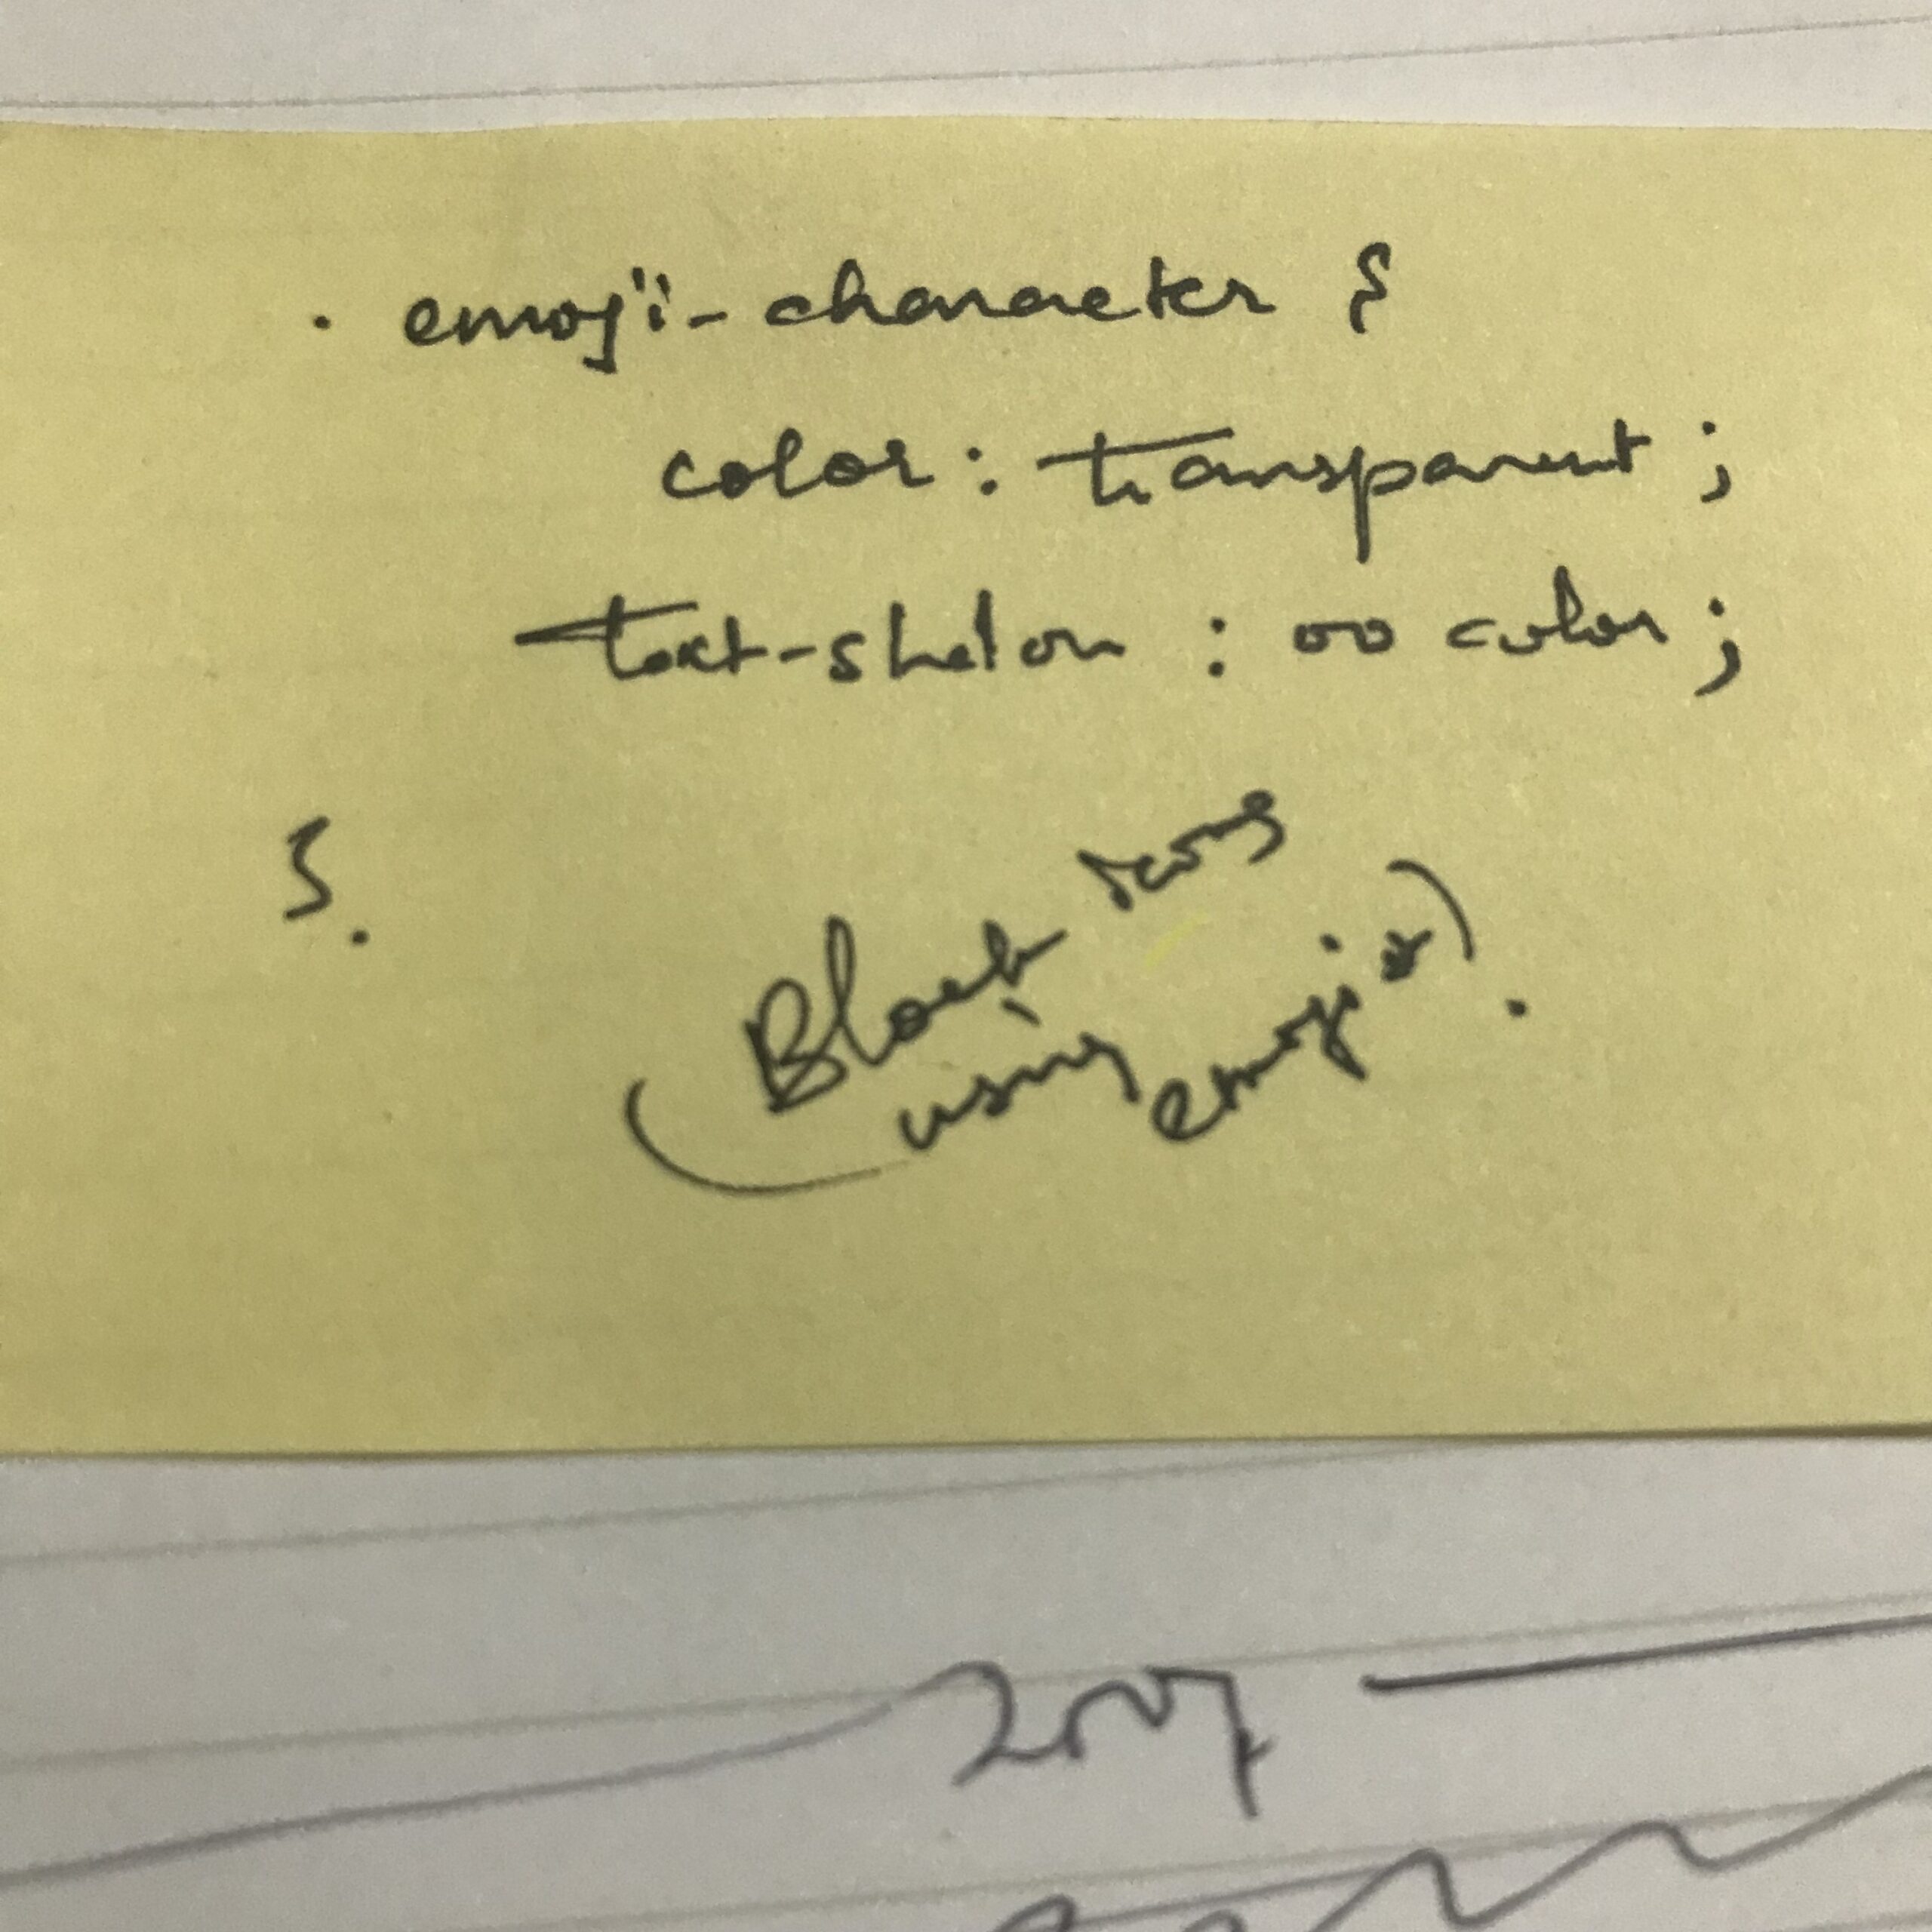 .emoji-character {
color: transparent;
text-shadow : 0 0 color;
}.
(Black icons
using emojis).
2007 —